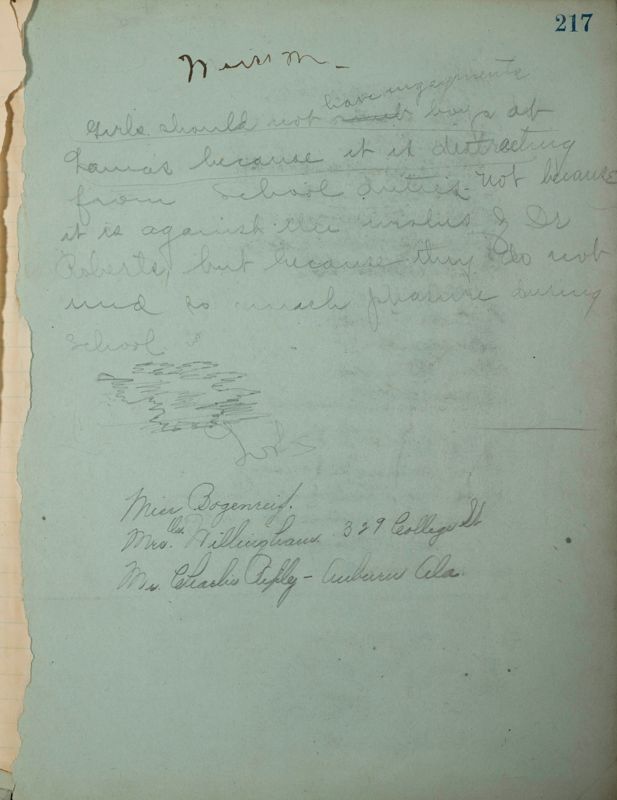 217
have engagements
Girls should not boys at
Lamas because it is distracting
from School duties. Not because
it is against the wishes of Dr
Roberts, but because they do not
need so much pleasure during
school.
Miss Bogenreif.
Mrs. Willingham 329 College St
Mr. Charlie Ripley - Auburn Ala.